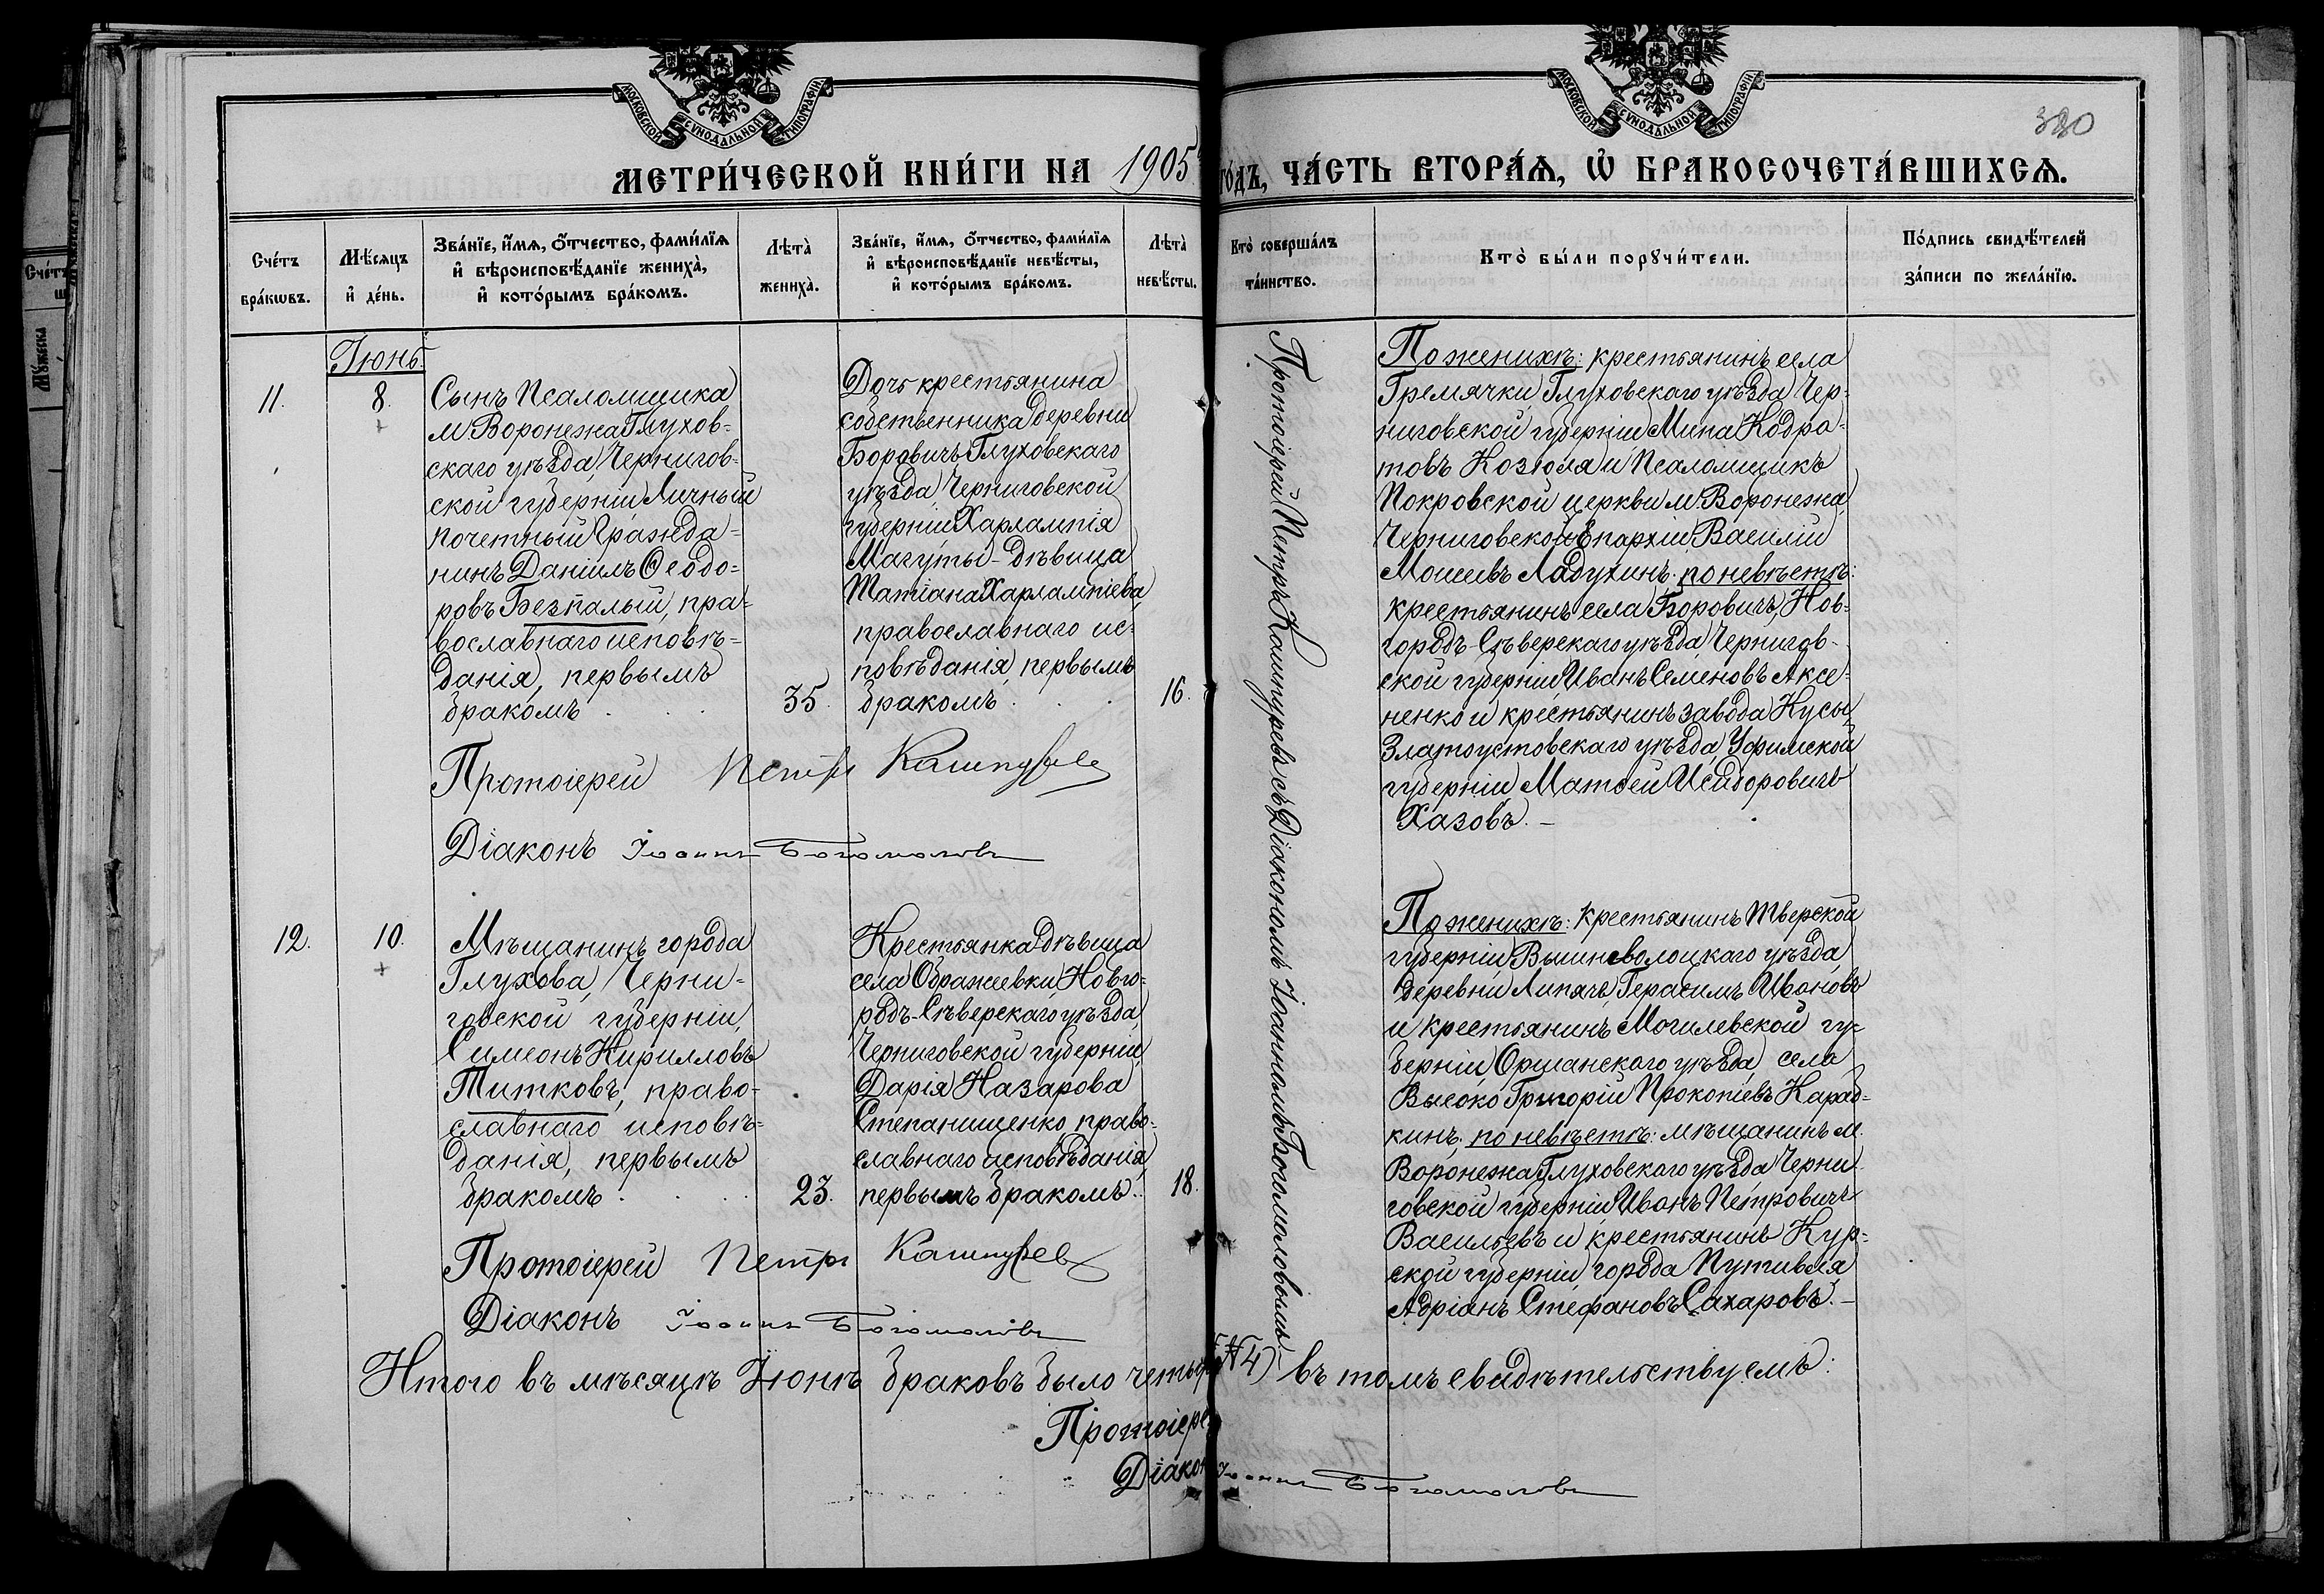 МОСКОВСКОЙ СѴНОДАЛЬНОЙ ТИПОГРАФІИ
МОСКОВСКОЙ СѴНОДАЛЬНОЙ ТИПОГРАФІИ
380
МЕТРИ́ЧЕСКОЙ КНИ́ГИ НА 1905 ГО́ДЪ, ЧА́СТЬ ВТОРА́Ѧ, Ѡ҆ БРАКОСОЧЕТА́ВШИХСѦ.
Сче́тъ
бра́кѡвъ.
Мѣ́сяцъ
и҆ де́нь.
Зва́нїе, и҆́мѧ, ѻ҆́тчество, фами́лїѧ
и҆ вѣроисповѣ́данїе жениха̀,
и҆ кото́рымъ бра́комъ.
Лѣта̀
жениха̀.
Зва́нїе, и҆́мѧ, ѻ҆́тчество, фами́лїѧ
и҆ вѣроисповѣ́данїе невѣ́сты,
и҆ кото́рымъ бра́комъ.
Лѣта̀
невѣ́сты.
Кто̀ соверша́лъ
та́инство.
Кто̀ бы́ли порꙋчи́тели.
По́дпись свидѣ́телей
за́писи по жела́нїю.
Іюнь
11.
8.
Сынъ Псаломщика
м. Воронежа Глухов=
скаго уѣзда, Чернигов=
ской губерніи Личный
почетный Гражда=
нинъ Даніилъ Ѳеодо=
ровъ Безпалый, пра=
вославнаго исповѣ=
данія, первымъ
бракомъ
35.
Дочь крестьянина
собственника деревни
Боровичъ Глуховскаго
уѣзда Черниговской
губерніи Харлампія
Магуты - дѣвица
Татіана Харлампіева,
православнаго ис=
повѣданія, первымъ
бракомъ
16.
Протоіерей Петръ Кашпуревъ
Діаконъ Іоаннъ Богомоловъ
Протоіерей Петръ Кашпуревъ съ Діакономъ Іоанномъ Богомоловымъ.
По женихѣ: крестьянинъ села
Гремячки, Глуховскаго уѣзда Чер=
ниговской губерніи Мина Кодра=
товъ Козюля и Псаломщикъ
Покровской церкви м. Воронежа,
Черниговской Епархіи, Василій
Мошевъ Ладухинъ. по невѣстѣ:
крестьянинъ села Боровичъ, Нов=
городъ-Сѣверскаго уѣзда Чернигов-
ской губерніи Иванъ Семеновъ Аксе=
ненко и крестьянинъ завода Кусы
Златоустовскаго уѣзда, Уфимской
губерніи Матѳей Исидоровичъ
Хазовъ. —
12.
10.
Мѣщанинъ города
Глухова, Черни=
говской губерніи,
Симеонъ Кирилловъ
Титковъ, право-
славнаго исповѣ=
данія, первымъ
бракомъ
23.
Крестьянка дѣвица
села Ображеевки, Новго=
родъ-Сѣверскаго уѣзда,
Черниговской губерніи,
Дарія Назарова
Степанищенко, право=
славнаго исповѣданія,
первымъ бракомъ.
18.
Протоіерей Петръ Кашпуревъ
Діаконъ Іоаннъ Богомоловъ
По женихѣ: крестьянинъ Тверской
губерніи, Вышневолоцкаго уѣзда,
деревни Липячъ, Герасимъ Ивановъ
и крестьянинъ Могилевской гу=
берніи, Оршанскаго уѣзда, села
Высоко Григорій Прокопіевъ Караб=
кинъ; по невѣстѣ: мѣщанинъ м.
Воронежа Глуховскаго уѣзда Черни-
говской губерніи Иванъ Петровичъ
Васильевъ и крестьянинъ Кур=
ской губерніи, города Путивля
Адріанъ Стефановъ Сахаровъ. —
Итого въ мѣсяцѣ Іюнѣ браковъ было четыр 4) въ томъ свидѣтельствуемъ:
Протоіере
Діакон Іоаннъ Богомоловъ